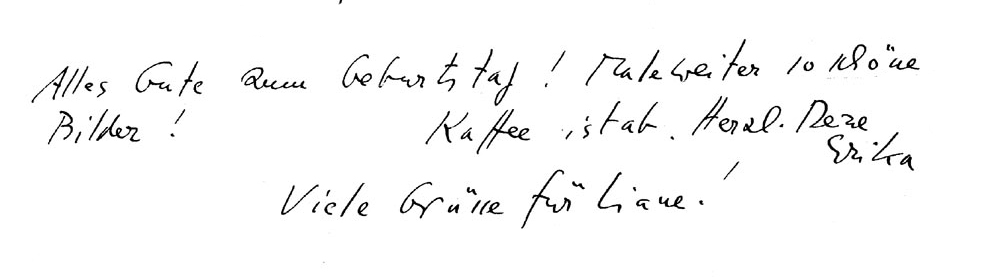 Alles Gute zum Geburtstag! Male weiter so schöne
Bilder! Kaffee ist ab. Herzl. Deine
Erika
Viele Grüsse für Liane!